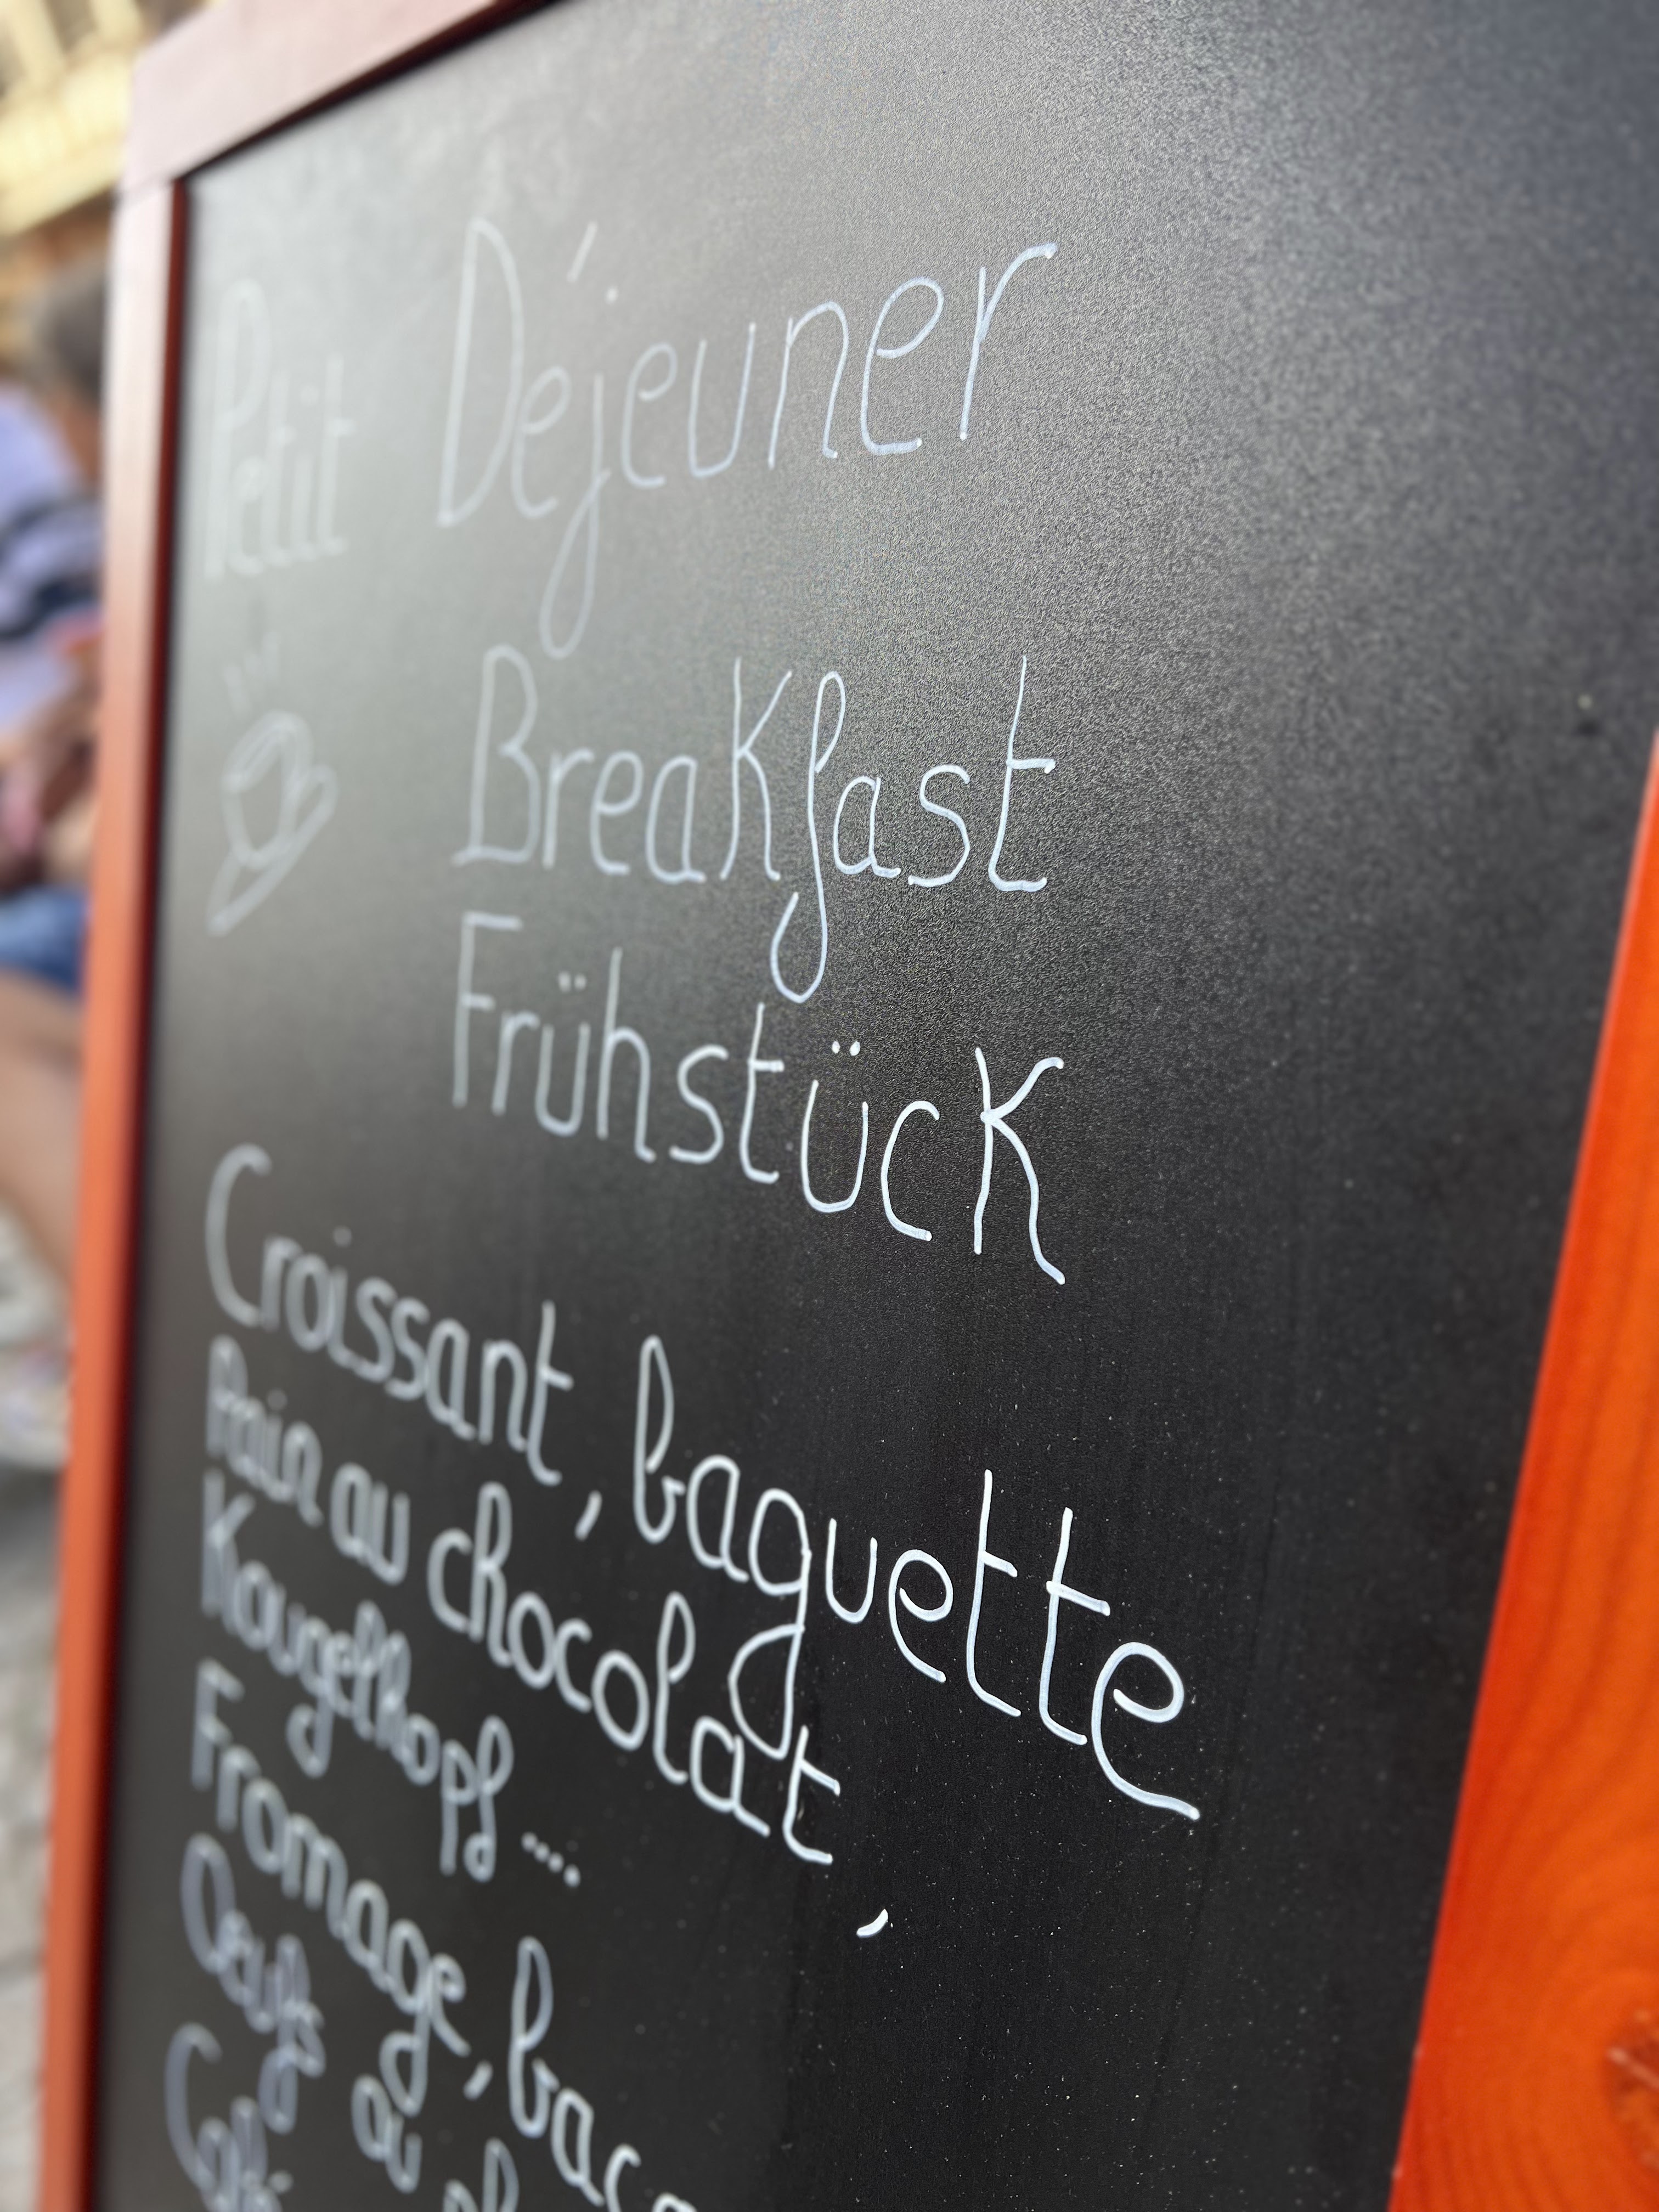 Petit Déjeuner
Breakfast
Frühstück
Croissant, baguette
Pain au chocolat,
Kougelhopf ....
Fromage,
Oeufs au
Café